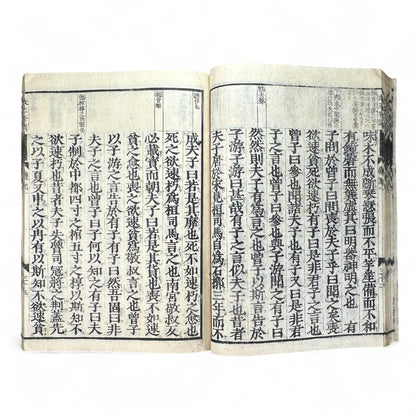 味木不成斲琴瑟張而不平竽笙備而不和
有鐘磬而無簨虡其曰明器神明之也有
子問於曾子曰問喪於夫子乎曰聞之矣喪
欲速貧死欲速朽有子曰是非君子之言也
曾子曰參也聞諸夫子也有子又曰是非君
子之言也曾子曰參也與子游聞之有子曰
然然則夫子有爲言之也曾子以斯言告於
子游子游曰甚哉有子之言似夫子也昔者
夫子居於宋見桓司馬自爲石椁三年而不
成夫子曰若是其靡也死不如速朽之愈也
死之欲速朽爲桓司馬言之也南宮敬叔反
必載寶而朝夫子曰若是其貨也喪不如速
貧之愈也喪之欲速貧爲敬叔言之也曾子
以子游之言告於有子有子曰然吾固曰非
夫子之言也曾子曰子何以知之有子曰夫
子制於中都四寸之棺五寸之椁以斯知不
欲速朽也昔者夫子失魯司寇將之荊蓋先
之以子夏又申之以冉有以斯知不欲速貧